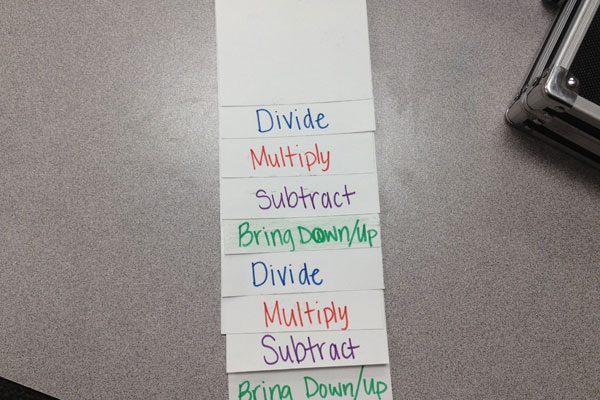 Divide
Multiply
Subtract
Bring Down/Up
Divide
Multiply
Subtract
Bring Down/Up